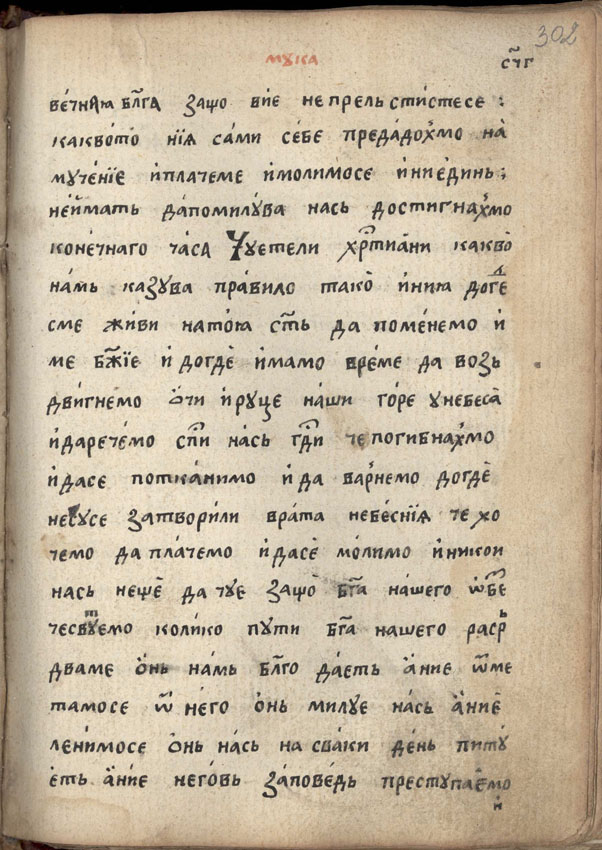 302
мꙋка
сч҃г
ве́чнѧꙗ бл҃га защо вїе непрельстистесе :
какво́то нїѧ са́ми се́бе преда́дохмо на
мꙋче́нїе и҆плачеме и҆молимосе и҆ниеди́нь :
не и҆мать да́помилꙋ́ва нась достигнахмо
коне́чнаго ча́са Чꙋетели хрⷭ҇тиа́ни какво̀
на́мь казꙋва пра́вило тако̀ и҆нию догдѐ
сме жи́ви нато́ю сть да поме́немо и҆
ме бж҃їе и҆ догдѐ и҆мамо вре́ме да возь
дви́гнемо о҆чи и҆рꙋце на́ши го́ре ꙋнебеса̀
и҆даречемо сп҃и на́сь гдⷭ҇и че погибнахмо
и҆дасе потка́нимо и҆да варнемо догдѐ
несꙋсе затвори́ли вра́та небе́снїѧ че хо
чемо да пла́чемо и҆дасѐ мо́лимо и҆никои
нась нещѐ да чꙋе защо̀ бг҃а на́шего ѡ҆бе
чествꙋемо коли́ко пꙋти бг҃а нашего расрь
дваме о҆нь намь бл҃го да́еть а҆ние ѿме
тамосе ѿ не́го о҆нь милꙋе на́сь а҆ниѐ
лени́мосе о҆нь на́сь на сва́ки де́нь питꙋ
е҆ть а҆ни́е него́вь за́поведь престꙋпа́емо
и